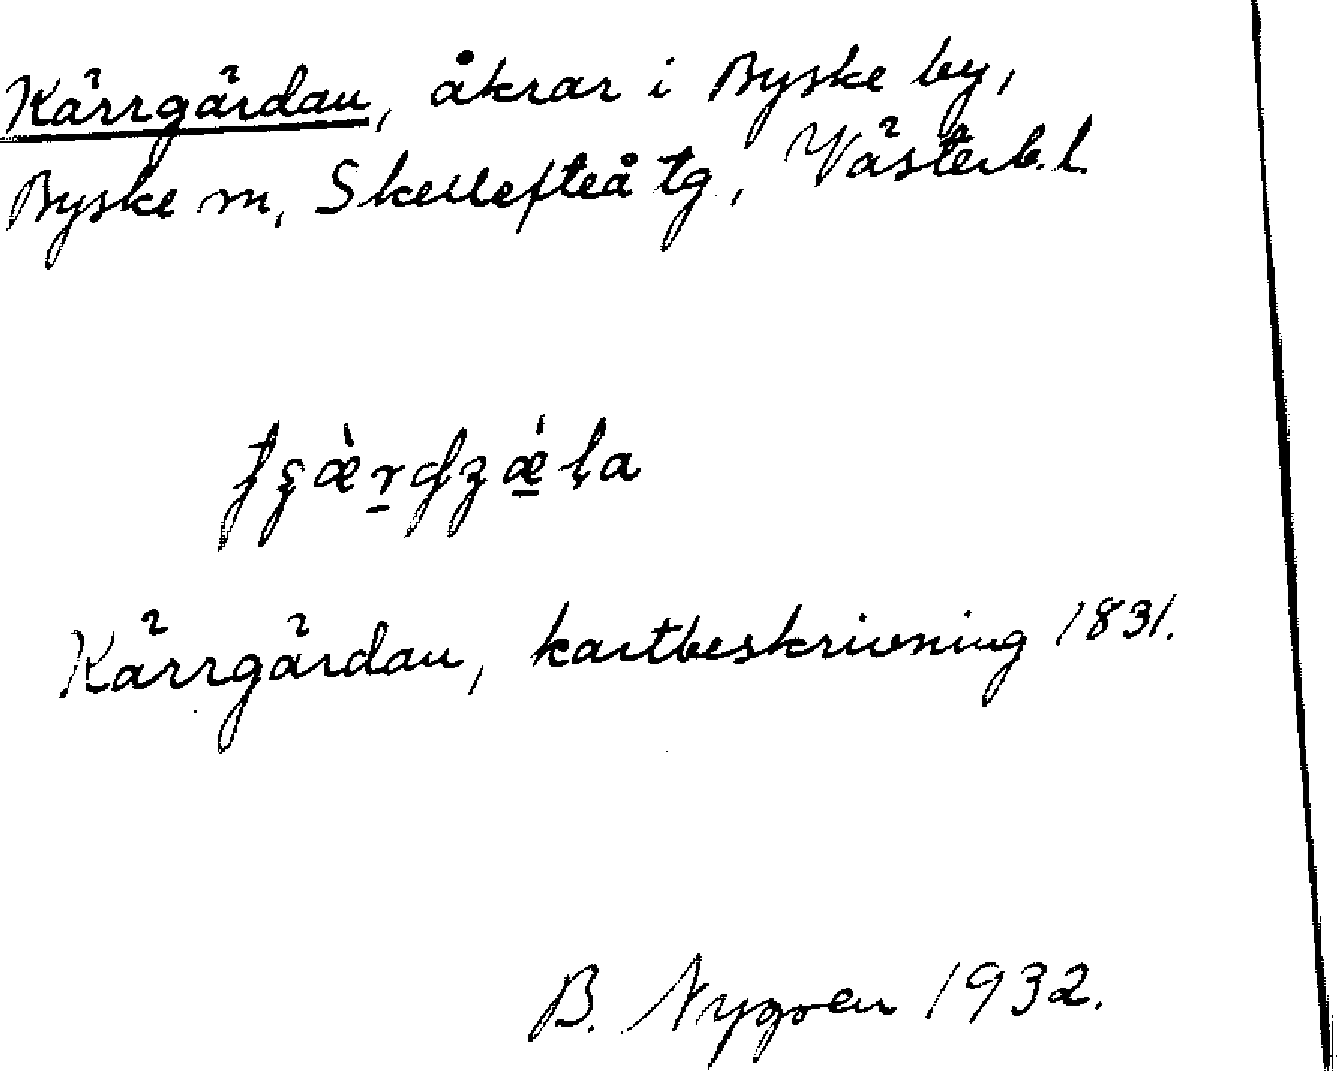 Kärrgärdan, åkrar i Byske by,
Byske sn, Skellefteå tg, Västerb. l.
Kärrgärdan, kartbeskrivning 1831.
B. Nygren 1932.